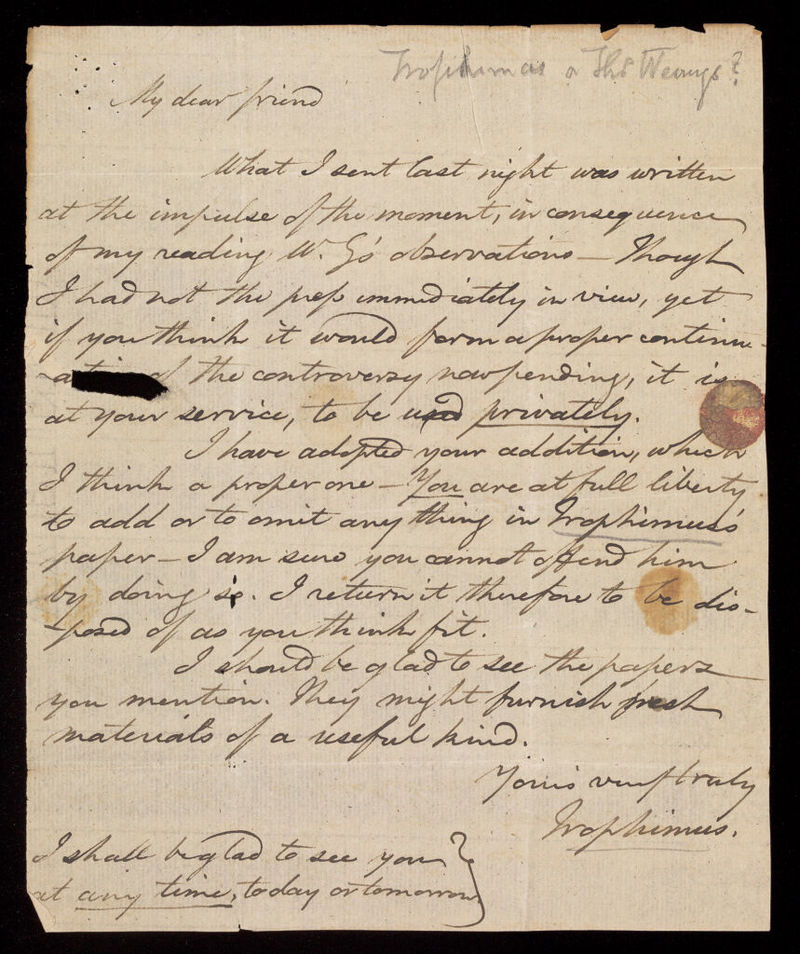 Trophimus or Thos Wemys?
My dear friend
What I sent last night was written
at the impulse of the moment, in consequence
of my reading W. G's observations — Though
I had not the press immediately in view, yet
if you think it would form a proper continu-
-ati of the controversy now pending, it is
at your service, to be used privately.
I have adopted your addition, which
I think a proper one — You are at full liberty
to add or to omit any thing in Trophimus's
paper — I am sure you cannot offend him
by doing so. I return it therefore to be dis-
-posed of as you think fit.
I should be glad to see the papers
you mention. They might furnish fresh
materials of a useful kind.
Yours very truly
Trophimus.
I shall be glad to see you
at any time, today or tomorrow